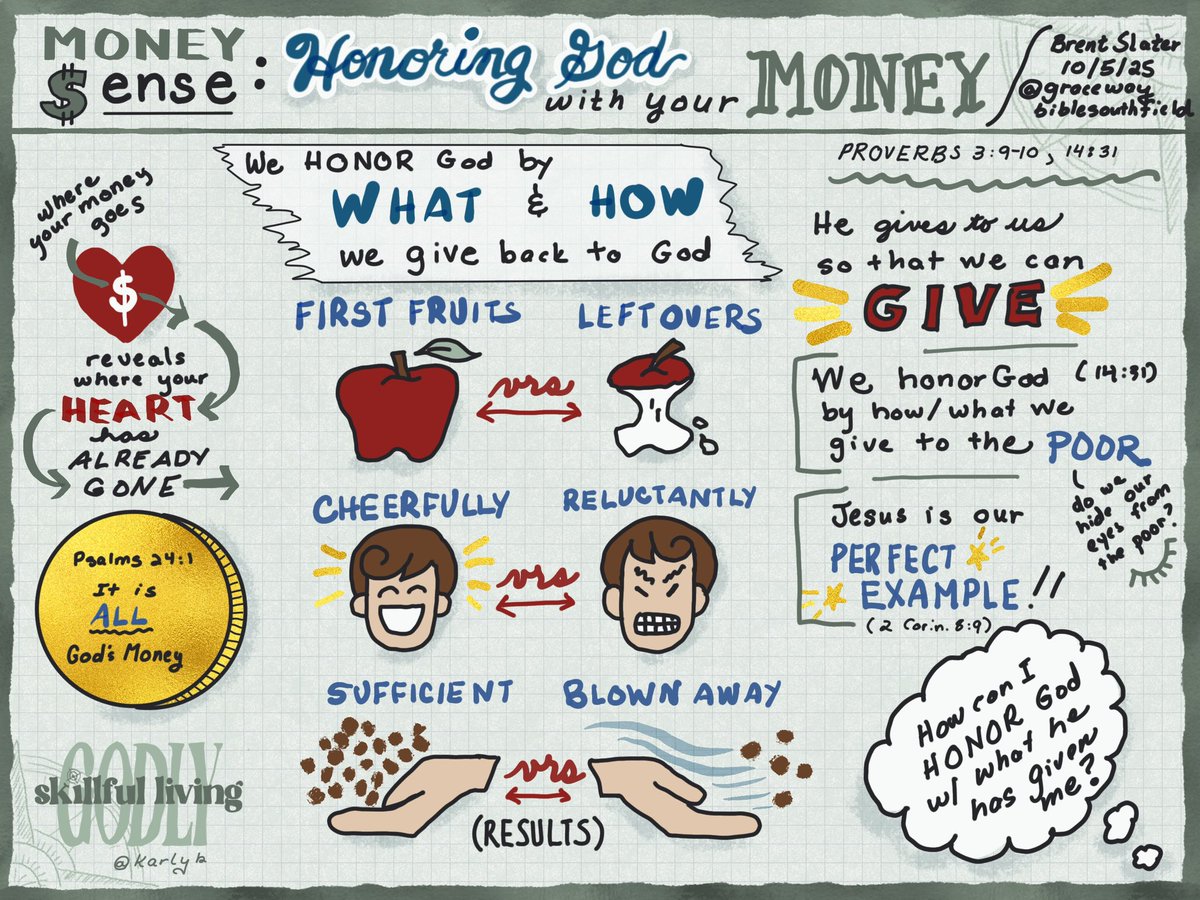 MONEY
$ense :
Honoring God
with your
MONEY
Brent Slater
10/5/25
@graceway
biblesouthfield
PROVERBS 3:9-10, 14:31
where
your money
goes
$
reveals
where your
HEART
has
ALREADY
GONE
Psalms 24:1
It is
ALL
God's Money
GODLY
skillful living
GODLY
@karlyb
We HONOR God by
WHAT & HOW
we give back to God
FIRST FRUITS
vrs
LEFTOVERS
CHEERFULLY
vrs
RELUCTANTLY
SUFFICIENT
vrs
BLOWN AWAY
(RESULTS)
He gives to us
so that we can
GIVE
We honor God (14:31)
by how/what we
give to the POOR
do we
hide our
eyes from
the poor?
Jesus is our
PERFECT
EXAMPLE!!
(2 Corin. 8:9)
How can I
HONOR God
w/ what he
has given
me?